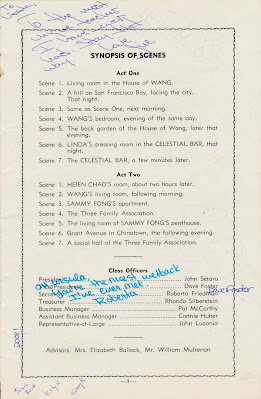 To the most
SYNOPSIS OF SCENES
Act One
Scene 1. Living room in the House of WANG.
Scene 2. A hill on San Francisco Bay, facing the city.
That night.
Scene 3. Same as Scene One, next morning.
Scene 4. WANG'S bedroom, evening of the same day.
Scene 5. The back garden of the House of Wang, later that
evening.
Scene 6. LINDA'S dressing room in the CELESTIAL BAR, that
night.
Scene 7. The CELESTIAL BAR, a few minutes later.
Act Two
Scene 1. HEIEN CHAO'S room, about two hours later.
Scene 2. WANG'S living room, following morning.
Scene 3. SAMMY FONG'S apartment.
Scene 4. The Three Family Association.
Scene 5. The living room of SAMMY FONG'S penthouse.
Scene 6. Grant Avenue in Chinatown, the following evening.
Scene 7. A social hall of the Three Family Association.
Class Officers
President John Setaro
Dave Foster
Roberta Friedman
Treasurer Rhonda Silberstein
Business Manager Pat McCarthy
Assistant Business Manager Connie Huber
Representative-at-Large John Luconio
the nicest, wetback
I've ever met
Roberta
Advisors: Mrs. Elizabeth Bullock, Mr. William Mulrenan